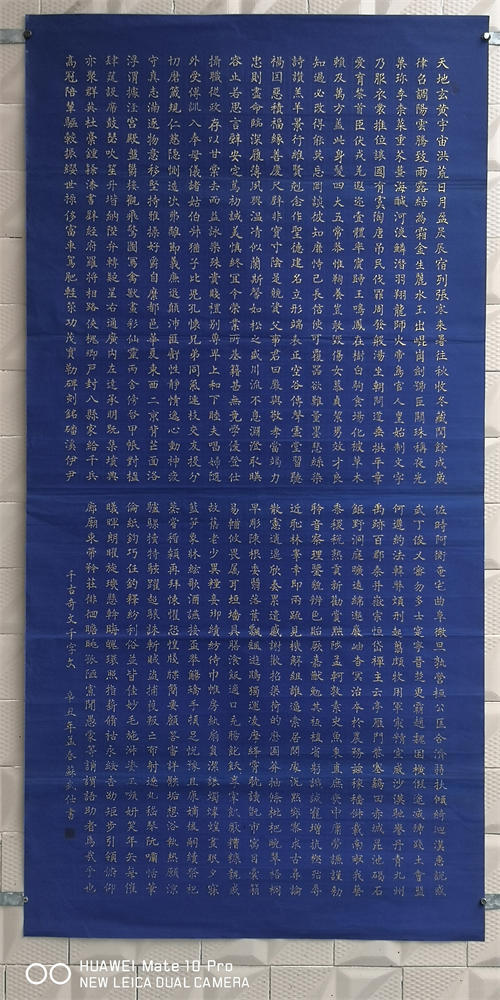 天地玄黃宇宙洪荒日月盈昃辰宿列張寒來暑往秋收冬藏閏餘成歲
律呂調陽雲騰致雨露結為霜金生麗水玉出崐崗劍號巨闕珠稱夜光
菓珍李柰菜重芥薑海鹹河淡鱗潛羽翔龍師火帝鳥官人皇始制文字
乃服衣裳推位讓國有虞陶唐弔民伐罪周發殷湯坐朝問道垂拱平章
愛育黎首臣伏戎羌遐邇壹體率賓歸王鳴鳳在樹白駒食場化被草木
賴及萬方蓋此身髮四大五常恭惟鞠養豈敢毀傷女慕貞潔男效才良
知過必改得能莫忘罔談彼短靡恃己長信使可覆器欲難量墨悲絲染
詩讚羔羊景行維賢剋念作聖德建名立形端表正空谷傳聲虛堂習聽
禍因惡積福緣善慶尺璧非寶寸陰是競資父事君曰嚴與敬孝當竭力
忠則盡命臨深履薄夙興溫凊似蘭斯馨如松之盛川流不息淵澄取暎
容止若思言辭安定篤初誠美慎終宜令榮業所基籍甚無竟學優登仕
攝職從政存以甘棠去而益詠樂殊貴賤禮別尊卑上和下睦夫唱婦隨
外受傅訓入奉母儀諸姑伯叔猶子比兒孔懷兄弟同氣連枝交友投分
切磨箴規仁慈隱惻造次弗離節義廉退顛沛匪虧性靜情逸心動神疲
守真志滿逐物意移堅持雅操好爵自縻都邑華夏東西二京背邙面洛
浮渭據涇宮殿盤鬱樓觀飛驚圖寫禽獸畫彩仙靈丙舍傍啟甲帳對楹
肆筵設席鼓瑟吹笙升階納陛弁轉疑星右通廣內左達承明既集墳典
亦聚群英杜稾鍾隸漆書壁經府羅將相路俠槐卿戶封八縣家給千兵
高冠陪輦驅轂振纓世祿侈富車駕肥輕策功茂實勒碑刻銘磻溪伊尹
佐時阿衡奄宅曲阜微旦孰營桓公匡合濟弱扶傾綺迴漢惠說感
武丁俊乂密勿多士寔寧晉楚更霸趙魏困橫假途滅虢踐土會盟
何遵約法韓弊煩刑起翦頗牧用軍最精宣威沙漠馳譽丹青九州
禹跡百郡秦并嶽宗恒岱禪主云亭雁門紫塞雞田赤城昆池碣石
鉅野洞庭曠遠綿邈巖岫杳冥治本於農務茲稼穡俶載南畝我藝
黍稷稅熟貢新勸賞黜陟孟軻敦素史魚秉直庶幾中庸勞謙謹勅
聆音察理鑒貌辨色貽厥嘉猷勉其祗植省躬譏誡寵增抗極殆辱
近恥林皋幸即兩疏見機解組誰逼索居閑處沉默寂寥求古尋論
散慮逍遙欣奏累遣慼謝歡招渠荷的歷園莽抽條枇杷晚翠梧桐
早彫陳根委翳落葉飄颻遊鵾獨運凌摩絳霄耽讀翫市寓目囊箱
易輶攸畏屬耳垣墻具膳飡飯適口充腸飽飫烹宰飢厭糟糠親戚
故舊老少異糧妾御績紡侍巾帷房紈扇圓潔銀燭煒煌晝眠夕寐
藍笋象牀絃歌酒讌接盃舉觴矯手頓足悅豫且康嫡後嗣續祭祀
蒸嘗稽顙再拜悚懼恐惶牋牒簡要顧答審詳骸垢想浴執熱願涼
驢騾犢特駭躍超驤誅斬賊盜捕獲叛亡布射遼丸嵇琴阮嘯恬筆
倫紙鈞巧任釣釋紛利俗並皆佳妙毛施淑姿工顰妍笑年矢每催
曦暉朗曜璇璣懸斡晦魄環照指薪修祜永綏吉劭矩步引領俯仰
廊廟束帶矜莊徘徊瞻眺孤陋寡聞愚蒙等誚謂語助者焉哉乎也
千古奇文千字文 辛丑年孟春蘇武仕書
HUAWEI Mate 10 Pro
NEW LEICA DUAL CAMERA